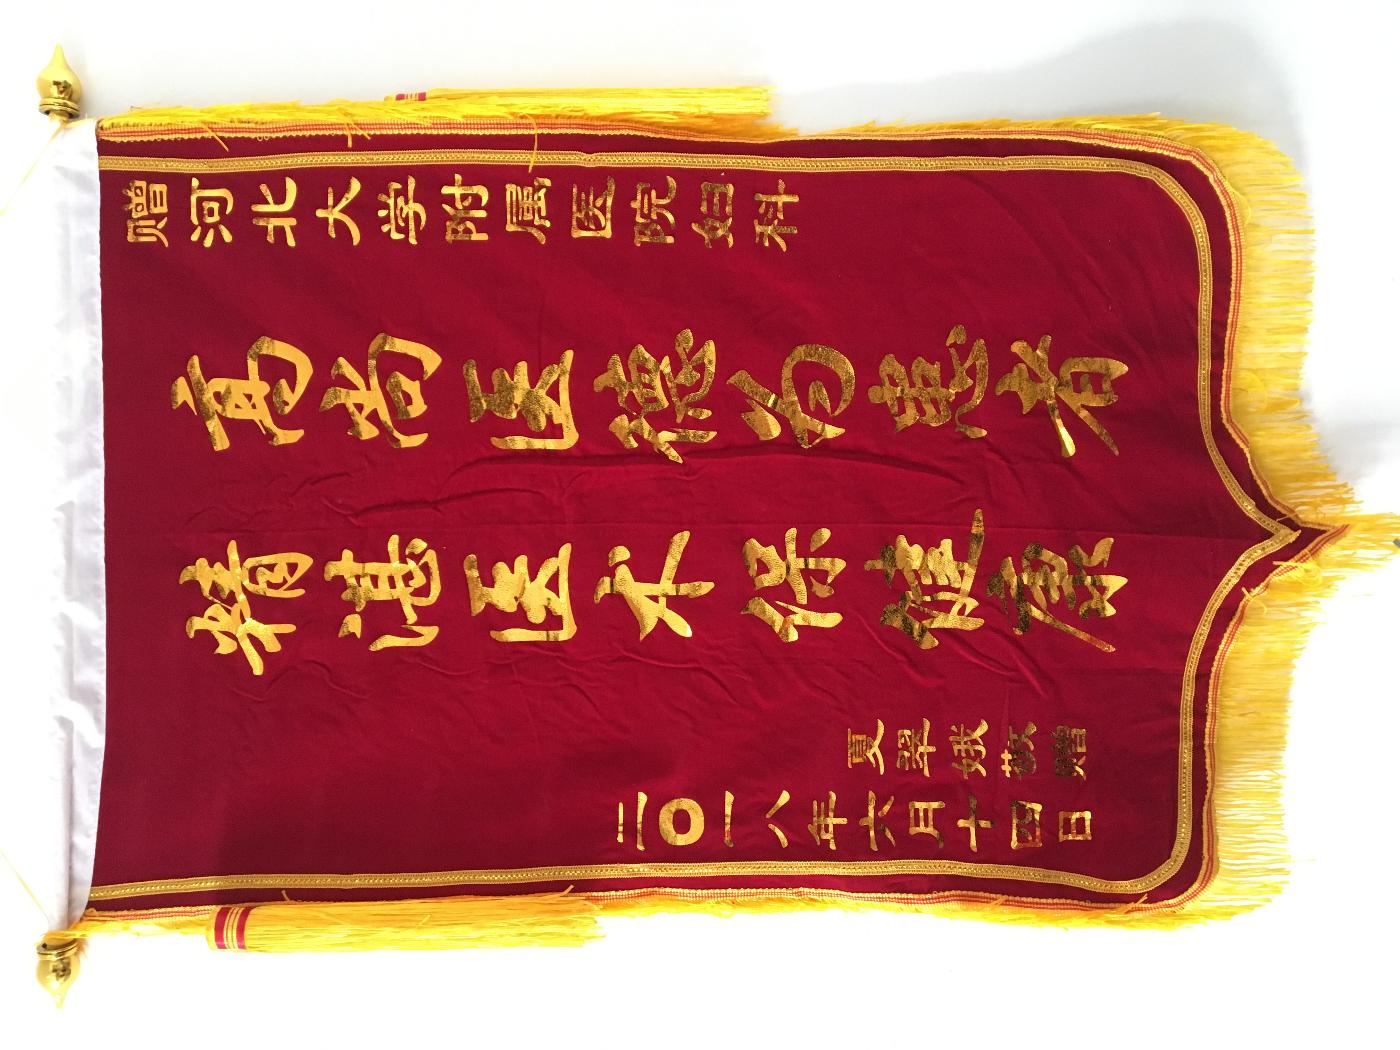 赠河北大学附属医院妇科
高尚医德为患者
精湛医术保健康
夏翠娥敬赠
二〇一八年六月十四日